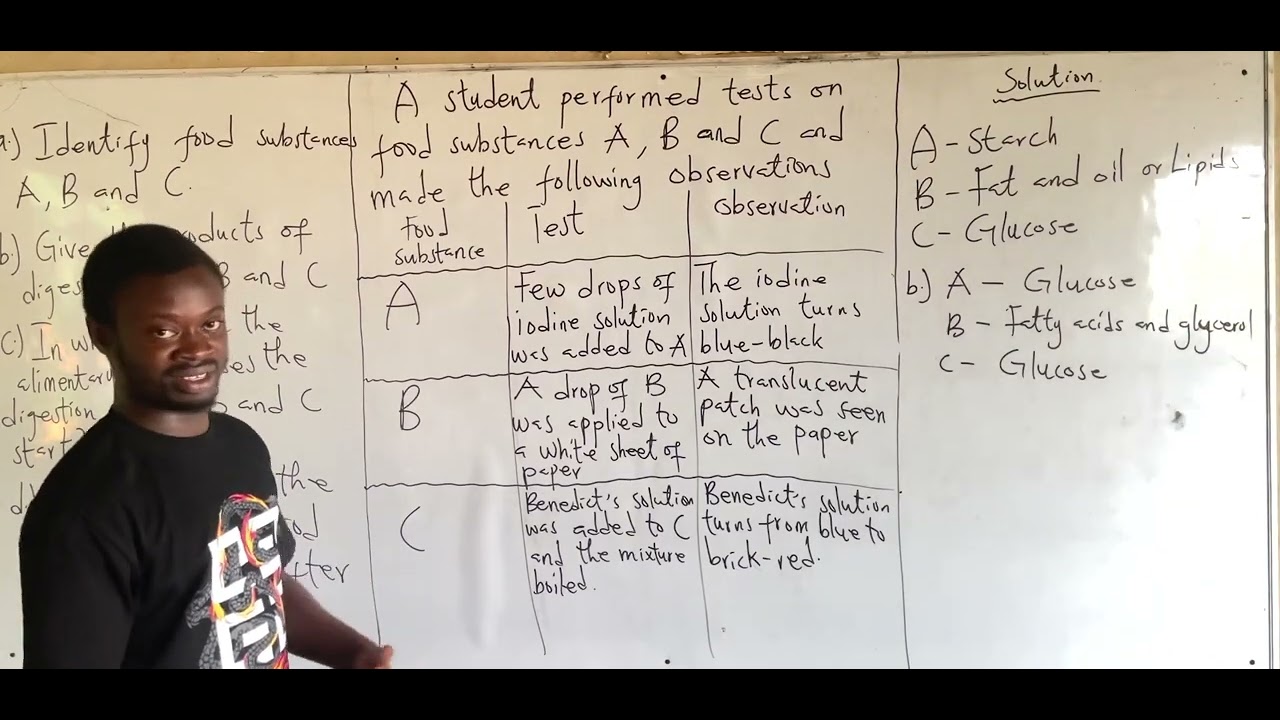 a.) Identify food substances
A, B and C.
b.) Give products of
diges B and C
c.) In the
alimentar the
digestion and C
start?
the
A student performed tests on
food substances A, B and C and
made the following observations
Food
substance
Test
observation
A
Few drops of
iodine solution
was added to A
The iodine
solution turns
blue-black
B
A drop of B
was applied to
a white sheet of
paper
A translucent
patch was seen
on the paper
C
Benedict's solution
was added to C
and the mixture
boiled.
Benedict's solution
turns from blue to
brick-red.
Solution
A - Starch
B - Fat and oil or Lipids
C - Glucose
b.) A - Glucose
B - Fatty acids and glycerol
C - Glucose